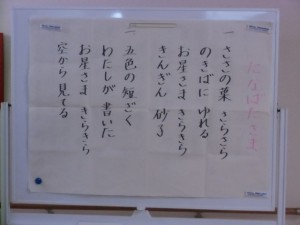 たなばたさま
一 ささの葉 さらさら
のきばに ゆれる
お星さま きらきら
きんぎん 砂子
二 五色の短ざく
わたしが 書いた
お星さま きらきら
空から 見てる